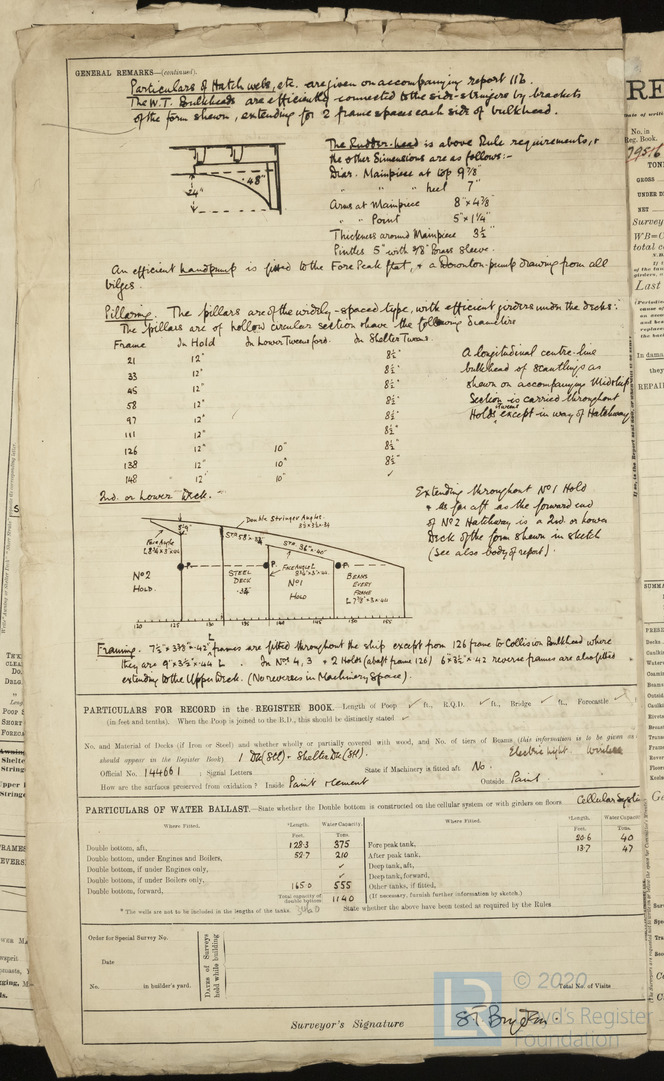 GENERAL REMARKS—(continued).
Particulars of Hatch webs, etc. are given on accompanying report 11b.
The W.T. Bulkheads are efficiently connected to the side-stringers by brackets
of the form shewn, extending for 2 frame spaces each side of bulkhead.
48"
24"
The Rudder-head is above Rule requirements, &
the other Dimensions are as follows:-
Diar. Mainpiece at top 9 7/8"
" " " heel 7"
Arms at Mainpiece 8" x 4 7/8"
" " Point 5" x 1 1/4"
Thickness around Mainpiece 8 1/2"
Pintles 5" with 3/8" Brass Sleeve.
An efficient handpump is fitted to the Fore Peak flat, & a Downton-pump drawing from all
bilges.
Pillaring. The pillars are of the widely-spaced type, with efficient girders under the decks:
The pillars are of hollow circular section & have the following Diameters
Frame In Hold In Lower Tweens ford. In Shelter Tweens.
21 12" 8 1/2"
33 12" 8 1/2"
45 12" 8 1/2"
58 12" 8 1/2"
97 12" 8 1/2"
111 12" 8 1/2"
126 12" 10" 8 1/2"
138 12" 10" 8 1/2"
148 12" 10" ✓
A longitudinal centre-line
bulkhead of scantlings as
shewn on accompanying Midship
Section is carried throughout
Holds & tween except in way of Hatchways
2nd. or Lower Deck.
Extending throughout No 1 Hold
& as far aft as the forward end
of No 2 Hatchway is a 2nd. or lower
Deck of the form shewn in sketch
(see also body of report).
Double Stringer Angles
Face Angle
No 2
HOLD.
STEEL
DECK
.34"
P.
P.
P.
Face Angle
No 1
HOLD
BEAMS
EVERY
FRAME
120 125 130 135 140 145 150 155
Framing. 7 1/2" x 3 1/2" x .42" L frames are fitted throughout the ship except from 126 frame to Collision Bulkhead where
they are 9" x 3 1/2" x .44 L. In Nos 4, 3, & 2 Holds (abaft frame 126) 6 x 3 1/2" x .42 reverse frames are also fitted
extending to the Upper Deck. (No reverses in Machinery Space).
PARTICULARS FOR RECORD in the REGISTER BOOK.—Length of Poop ✓ ft., R.Q.D. ✓ ft., Bridge ✓ ft., Forecastle ✓
(in feet and tenths). When the Poop is joined to the B.D., this should be distinctly stated ✓
No. and Material of Decks (if Iron or Steel) and whether wholly or partially covered with wood, and No. of tiers of Beams (this information is to be given as
should appear in the Register Book) 1 Dk (Stl) - Shelter Dk (Stl). Electric light. Wireless
Official No. 144661 ; Signal Letters State if Machinery is fitted aft No.
How are the surfaces preserved from oxidation? Inside Paint & Cement Outside Paint.
PARTICULARS OF WATER BALLAST.—State whether the Double bottom is constructed on the cellular system or with girders on floors Cellular System
Where Fitted. *Length. Water Capacity. Where Fitted. *Length. Water Capacity
Feet. Tons. Feet. Tons.
Double bottom, aft, 128.3 375 Fore peak tank, 20.6 40
Double bottom, under Engines and Boilers, 52.7 210 After peak tank, 13.7 47
Double bottom, if under Engines only, ✓ Deep tank, aft,
Double bottom, if under Boilers only, ✓ Deep tank, forward,
Double bottom, forward, 165.0 555 Other tanks, if fitted,
Total capacity of double bottom 1140 (If necessary, furnish further information by sketch.)
* The wells are not to be included in the lengths of the tanks. 346.0 State whether the above have been tested as required by the Rules
Order for Special Survey No.
Date
No. in builder's yard.
Dates of Surveys held while building
Total No. of Visits
Surveyor's Signature
© 2020
Lloyd's Register
Foundation